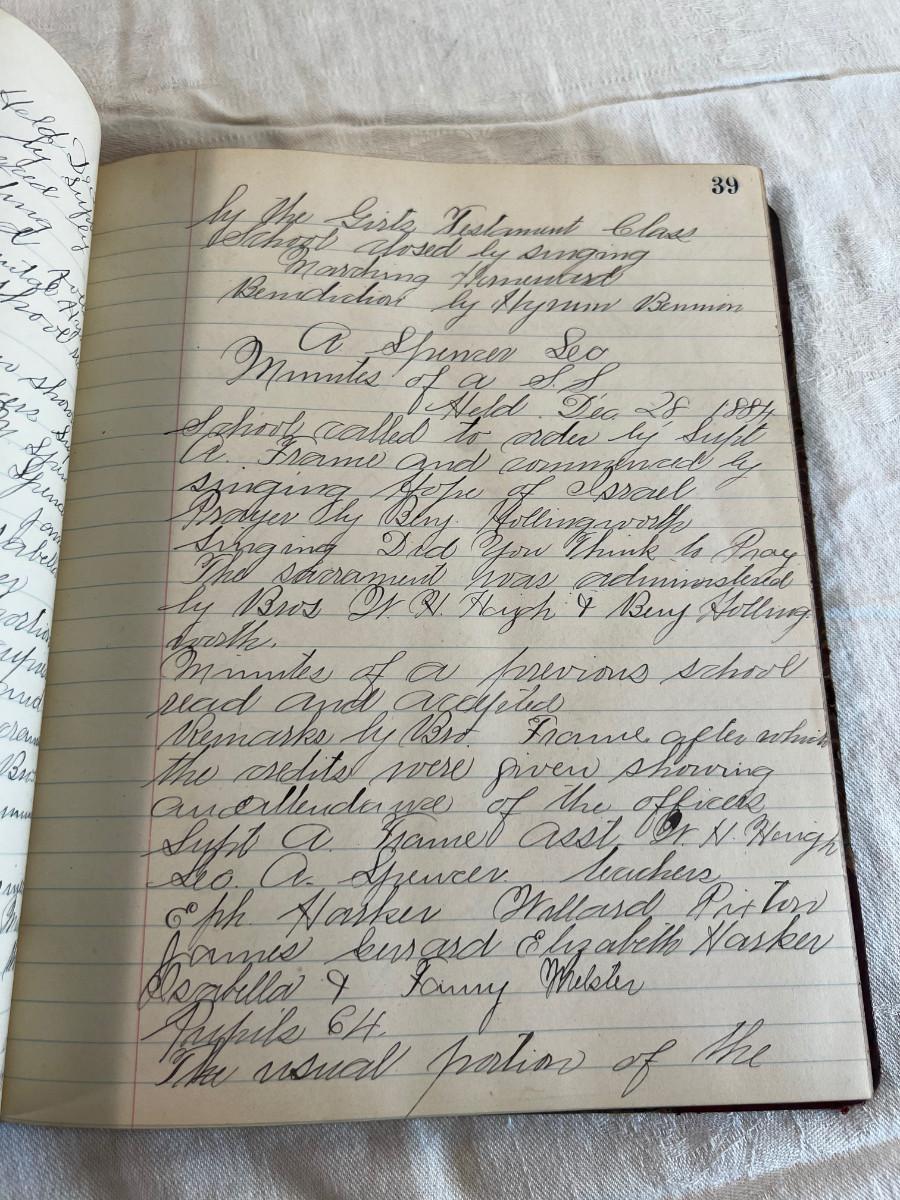 39
by the Girls Testament Class
School closed by singing
Marching Homeward
Benediction by Hyrum Bennion
A Spencer Sec
Minutes of a S.S
Held Dec. 28 1884
School called to order by Supt
A. Frame and commenced by
singing Hope of Israel
Prayer by Benj. Hollingworth
Singing Did You Think to Pray
The sacrament was administered
by Bros W. H Haigh & Benj Holling
worth.
Minutes of a previous school
read and accepted
Remarks by Bro Frame after which
the credits were given showing
an attendance of the officers
Supt A. Frame Asst W. H. Haigh
Sec. A. Spencer teachers
Eph Harker Willard Pixton
James Gerrard Elizabeth Harker
Isabella & Fanny Webster
Pupils 64
The usual portion of the